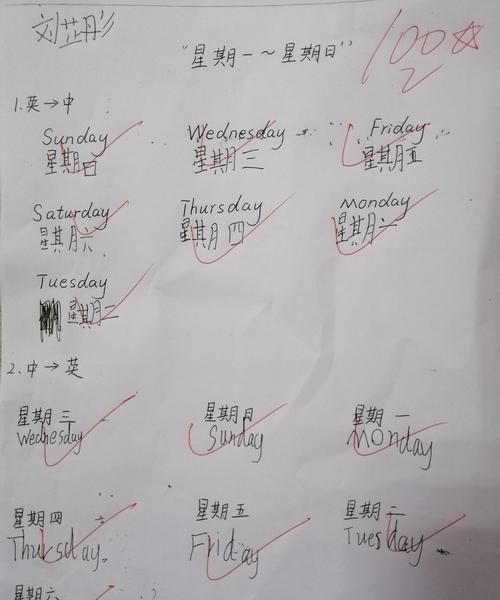 刘芷彤
"星期一～星期日"
100☆
1.英→中
Sunday Wednesday Friday
星期日 星期三 星期五
Saturday Thursday Monday
星期六 星期四 星期一
Tuesday
星期二
2.中→英
星期三 星期日 星期一
Wednesday Sunday Monday
星期四 星期五 星期二
Thursday. Friday Tuesday
星期六